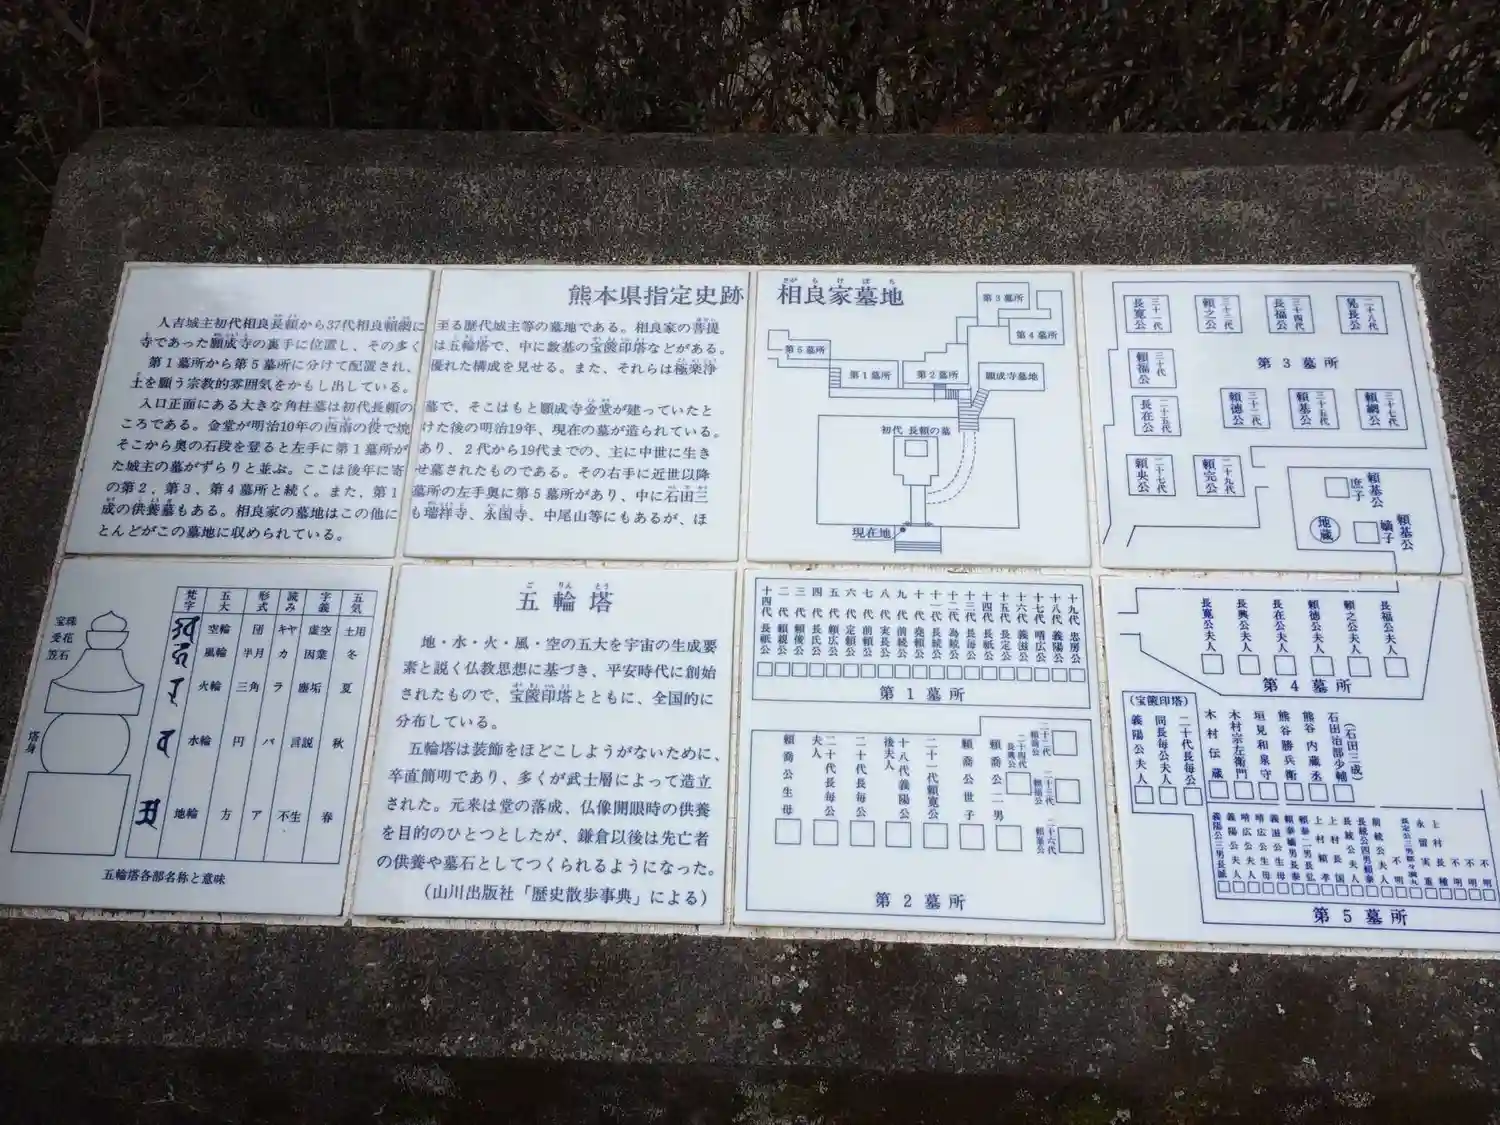 熊本県指定史跡 相良家墓地
さがらけぼち
人吉城主初代相良長頼から37代相良頼綱に至る歴代城主等の墓地である。相良家の菩提
寺であった願成寺の裏手に位置し、その多くは五輪塔で、中に数基の宝篋印塔などがある。
第1墓所から第5墓所に分けて配置され、優れた構成を見せる。また、それらは極楽浄
土を願う宗教的雰囲気をかもし出している。
入口正面にある大きな角柱墓は初代長頼の墓で、そこはもと願成寺金堂が建っていたと
ころである。金堂が明治10年の西南の役で焼けた後の明治19年、現在の墓が造られている。
そこから奥の石段を登ると左手に第1墓所があり、2代から19代までの、主に中世に生き
た城主の墓がずらりと並ぶ。ここは後年に寄せ墓されたものである。その右手に近世以降
の第2、第3、第4墓所と続く。また、第1墓所の左手奥に第5墓所があり、中に石田三
成の供養墓もある。相良家の墓地はこの他にも瑞祥寺、永国寺、中尾山等にもあるが、ほ
とんどがこの墓地に収められている。
第3墓所
第4墓所
第5墓所
第1墓所
第2墓所
願成寺墓地
初代 長頼の墓
現在地
三十一代 長寛公
三十三代 頼之公
三十四代 長福公
二十八代 晃長公
三十代 頼福公
第3墓所
二十五代 長在公
三十二代 頼徳公
三十五代 頼基公
三十七代 頼綱公
二十七代 頼央公
二十九代 頼完公
頼基公 庶子
地蔵
頼基公 嫡子
宝珠
受花
笠石
塔身
梵字 五大 形式 読み 字義 五気
空輪 団 キャ 虚空 土用
風輪 半月 カ 因業 冬
火輪 三角 ラ 塵垢 夏
水輪 円 バ 言説 秋
地輪 方 ア 不生 春
五輪塔各部名称と意味
ごりんとう
五輪塔
地・水・火・風・空の五大を宇宙の生成要
素と説く仏教思想に基づき、平安時代に創始
されたもので、宝篋印塔とともに、全国的に
分布している。
五輪塔は装飾をほどこしようがないために、
卒直簡明であり、多くが武士層によって造立
された。元来は堂の落成、仏像開眼時の供養
を目的のひとつとしたが、鎌倉以後は先亡者
の供養や墓石としてつくられるようになった。
(山川出版社「歴史散歩事典」による)
十九代 忠房公
十八代 義陽公
十七代 晴広公
十六代 義滋公
十五代 長定公
十四代 長祇公
十三代 長毎公
十二代 為続公
十一代 長続公
十代 堯頼公
九代 前続公
八代 実長公
七代 前頼公
六代 定頼公
五代 頼広公
四代 長氏公
三代 頼俊公
二代 頼親公
十四代 長祇公
第1墓所
二十二代 頼喬公
二十四代 長興公
二十三代 頼福公
二十六代 頼峯公
頼喬公二男
頼喬公世子
二十一代頼寛公
十八代義陽公後夫人
二十代長毎公
二十代長毎公夫人
頼喬公生母
第2墓所
長福公夫人
頼之公夫人
頼徳公夫人
長在公夫人
長興公夫人
長寛公夫人
第4墓所
(宝篋印塔)
二十代長毎公
同長毎公夫人
義陽公夫人
(石田三成)
石田治部少輔
熊谷内蔵丞
熊谷勝兵衛
垣見和泉守
木村宗左衛門
木村伝蔵
不明
不明
不明
上村長種
永留実重
不明
不明
前続公夫人
長続公四男頼泰
長続公夫人
上村長国
上村頼孝
頼泰二男長弘
頼泰嫡男長泰
義滋公生母
晴広公生母
晴広公夫人
義陽公夫人
義陽公三男長誠
第5墓所